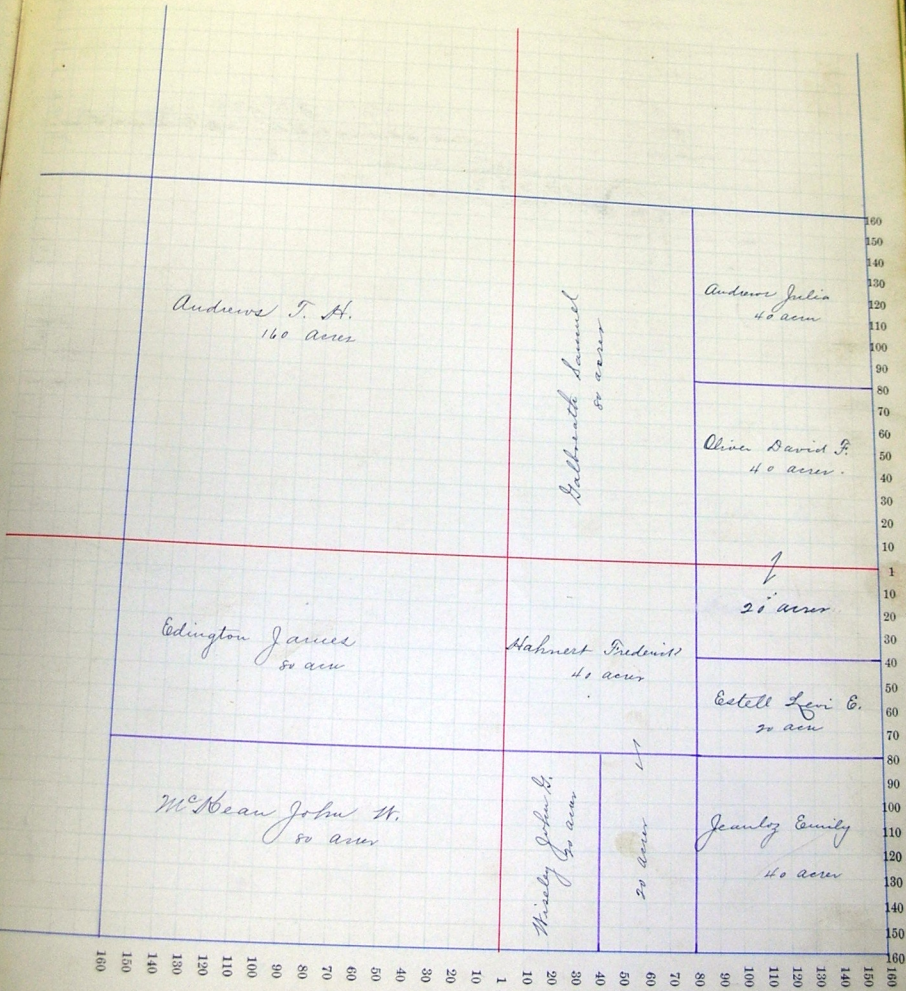 Andrews T. H.
160 acres
Galbreath Samuel
80 acres
Andrews Julia
40 acres
Oliver David F.
40 acres.
20 acres
Edington James
80 acres
Hahnert Frederick
40 acres
Estell Levi E.
20 acres
McKean John W.
80 acres
Wiseley John G.
20 acres
20 acres
Jeanloz Emily
40 acres
160
150
140
130
120
110
100
90
80
70
60
50
40
30
20
10
1
10
20
30
40
50
60
70
80
90
100
110
120
130
140
150
160
160 150 140 130 120 110 100 90 80 70 60 50 40 30 20 10 1 10 20 30 40 50 60 70 80 90 100 110 120 130 140 150 160